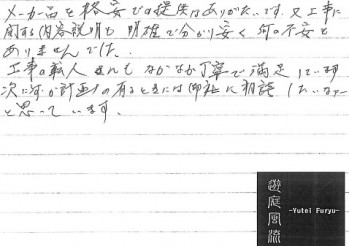 メーカー品を格安での提供はありがたいです。又工事に
関する内容説明も明確で分かり安く何の不安も
ありませんでした。
工事の職人さんもなかなか丁寧で満足しています
次にまた計画の有るときには御社に相談したいなァー
と思っています。
遊庭風流
-Yutei Furyu-